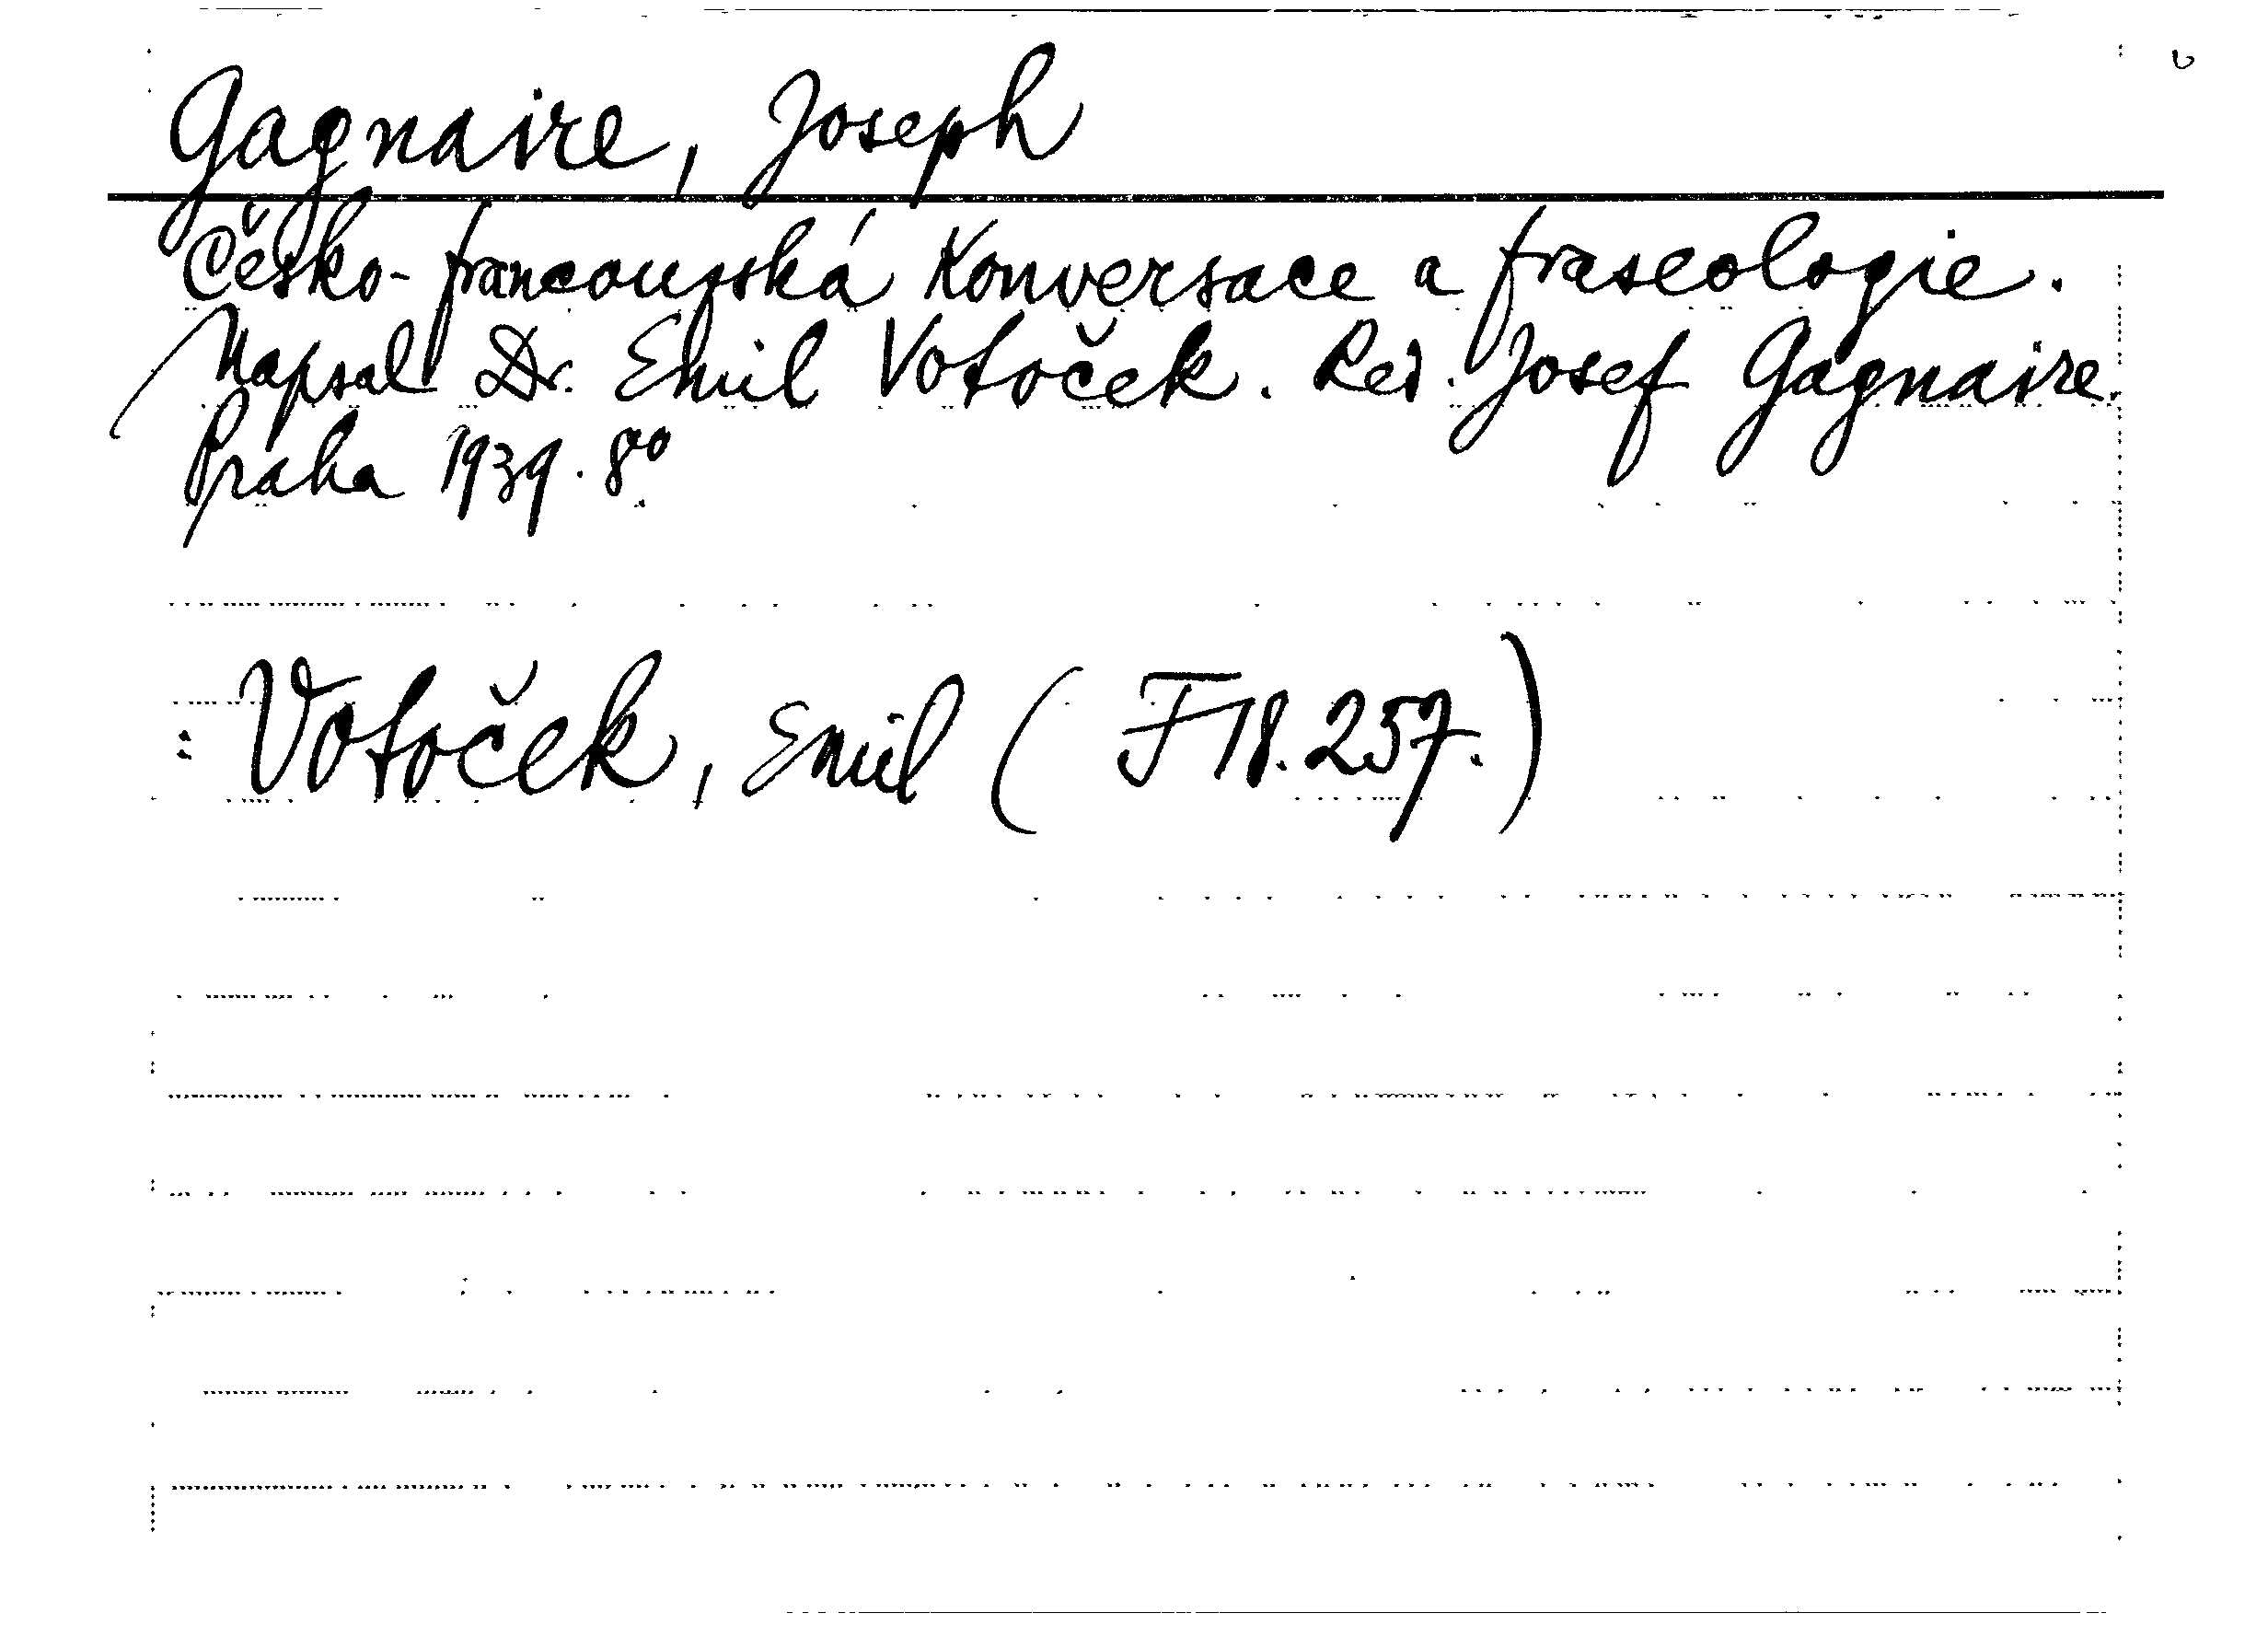 Gagnaire, Joseph
Česko-francouzská konversace a fraseologie.
Napsal Dr. Emil Votoček. Red. Josef Gagnaire.
Praha 1939. 8°
: Votoček, Emil ( F 18.257.)